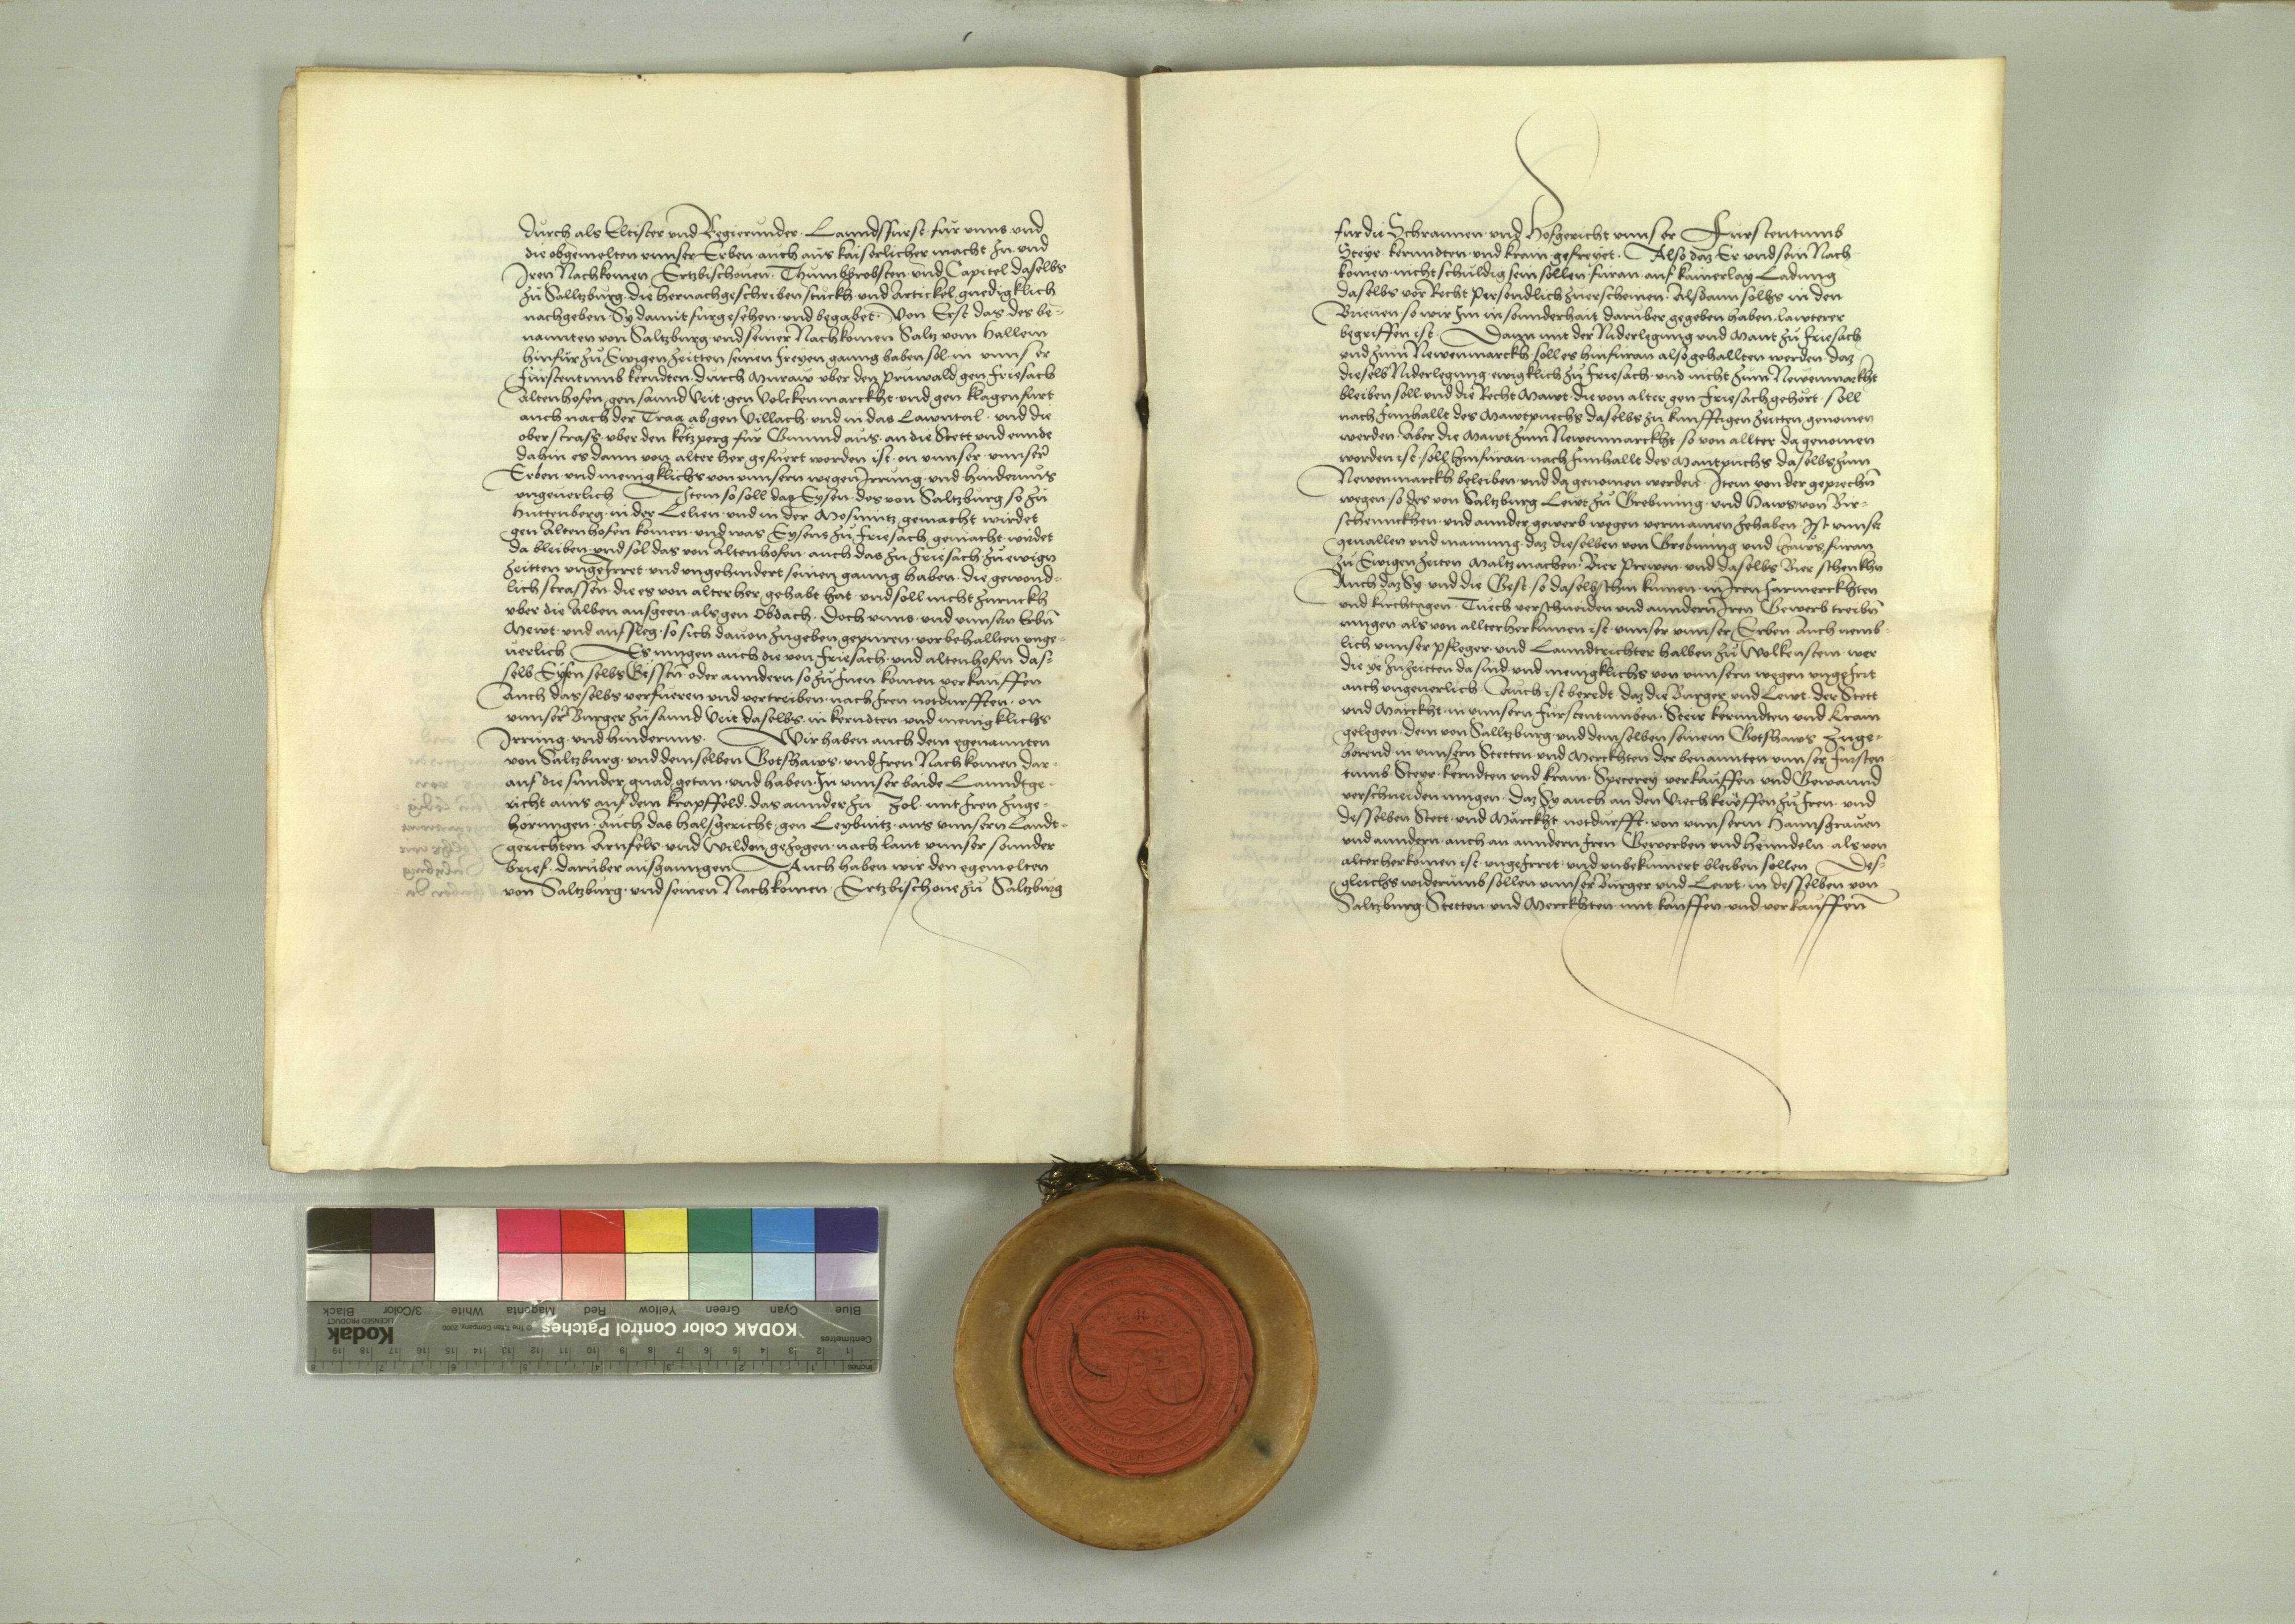 durch als Eltister vnd Regierunder Lanndsfürst für vnns vnd
die obgemelten vnnser Erben auch aus kaiserlicher macht Zu vnd
Iren Nachkomen Ertzbischouen Thumbbrobsten vnd Capitel daselbs
zu Salltzburg die hernachgeschriben stuckh vnd Artickel gnedigklich
nachgeben Sy damit fürgesehen vnd begabet Von Erst das des be-
nannten von Saltzburg vnd seiner Nachkomen Saltz vom Hallein
hinfür zu Ewigen zeitten seinen freyen ganng haben sol in vnnser
fürstentumb kernndten durch Muraw vber den pruwald gen Friesach
Altenhofen gen sannd Veit gen Volckenmarckht vnd gen klagenfurt
auch nach der Traa ab gen Villach vnd in das Lavntal vnd die
oberstrass vber den ketzperg für Gmund aus an die Stett vnd ennde
dahin es dann von alter her gefuert worden ist on vnnser vnnser
Erben vnd menigklichs von vnnsern wegen Irrung vnd hindernus
vngeuerlich Item so soll das Eysen des von Saltzburg so zu
Huttenberg in der Lelien vnd in der Mosinntz gemacht wirdet
gen Altenhofen komen vnd was Eysens zu Friesach gemacht wirdet
da bleiben vnd sol das von Altenhofen auch das zu Friesach zu ewign
zeitten vngeIrret vnd vngehindert seinen ganng haben die gewond-
lich strassen die es von alter her gehabt hat vnd soll nicht zuruckh
vber die Alben ausgeen als gen Obdach Doch vnns vnd vnnsern Erbn
Mewt vnd aufsleg so sich dauon zugeben gepuren vorbehallten vnge-
uerlich Es mugen auch die von Friesach vnd altenhofen das-
selb Eysen selbs oder anndern so zu Inen komen verkauffen
Auch dasselbs verfueren vnd vertreiben nach Iren notdurfften on
vnnser Burger zu sannd Veit daselbs in kerndten vnd menigklichs
Irrung vnd hindernus. Wir haben auch dem egenannten
von Saltzburg vnd demselben Gotshaws vnd Iren Nachkomen dar-
auf die sunder gnad getan vnd haben In vnnser baide Lanndtge-
richt ains auf dem krapffeld das annder zu Zol mit Iren zuge-
hörungen Auch das halsgericht gen Leybnitz aus vnnsern Landt-
gerichten Arnfels vnd Wildon gezogen nach laut vnnser sonnder
brief darüber ausganngen Auch haben wir den egemelten
von Saltzburg vnd seinen Nachkomen Ertzbischoue zu Saltzburg
für die Schrannen vnd Hofgericht vnnser Fürstentumb
Steyr kernndten vnd krain gefreyet. Also daz Er vnd sein Nach
komen nicht schuldig sein sollen füran auf kainerlay Ladung
daselbs vor Recht persondlich zuerscheinen Alsdann solhs in den
Brieuen so wir Im in sonnderhait darüber gegeben haben lawterer
begriffen ist. Dann mit der Niderlegung vnd Maut zu Friesach
vnd zum Newenmarckh soll es hinfuran also gehallten werden daz
dieselb Niderlegung ewigklich zu Friesach vnd nicht zum Newenmarckht
bleiben soll vnd die Recht Mawt die von alter gen Friesach gehort soll
nach Innhallt des Mawtpuechs daselbs zu kunfftigen zeitten genomen
werden Aber die Mawt zum Newenmarckht so von allter da genomen
worden ist soll hinfüran nach Innhallt des Mautpuchs daselbs zum
Newenmarckh beleiben vnd da genomen werden Item von der geprechn
wegen so des von Saltzburg Lewt zu Grebming vnd Haws von Bir-
schennckhen vnd annder gewerb wegen vermainen zehaben Ist vnnser
geuallen vnd mainung daz dieselben von Grebming vnd Haws füran
zu Ewigen zeiten Maltz machen Bier Prewen vnd daselbs Bier schenkhn
Auch daz Sy vnd die Gest so daselbshin kumen in Iren Jarmerckhten
vnd kirchtagen Tuech verschneiden vnd anndern Iren Gewerb treibn
mugen als von allter herkumen ist vnnser vnnser Erben Auch nemb-
lich vnnser pfleger vnd Lanndtrichter halben zu Wolkenstein wer
die ye zuzeitten da sind vnd menigklichs von vnnsern wegen vngeirrt
auch vngeuerlich Auch ist beredt daz die Burger vnd Lewt der Stett
vnd Märckht in vnnsern fürstentumben Steir kernndten vnd krain
gelegen dem von Salltzburg vnd demselben seinem Gotshaws zuge-
hörend in vnnsern Stetten vnd Merckhten der benannten vnnser fursten-
tumb Steyr kerndten vnd krain Specerey verkauffen vnd Gewannd
verschneiden mugen Daz Sy auch an den Viechkewffen zu Iren vnd
desselben Stett vnd Märckht notdurfft von vnnserm Hannsgrauen
vnd anndern auch an anndern Iren Gewerben vnd henndeln als von
alter herkomen ist vngeIrret vnd vnbekumert bleiben sollen Des-
gleichs widerumb sollen vnnser Burger vnd Lewt in desselben von
Saltzburg Stetten vnd Merckhten mit kauffen vnd verkauffen
KODAK Color Control Patches
Kodak
LICENSED PRODUCT
© The Tiffen Company, 2000
Blue Cyan Green Yellow Red Magenta White 3/Color Black
Centimetres
Inches
1 2 3 4 5 6 7 8 9 10 11 12 13 14 15 16 17 18 19
1 2 3 4 5 6 7 8